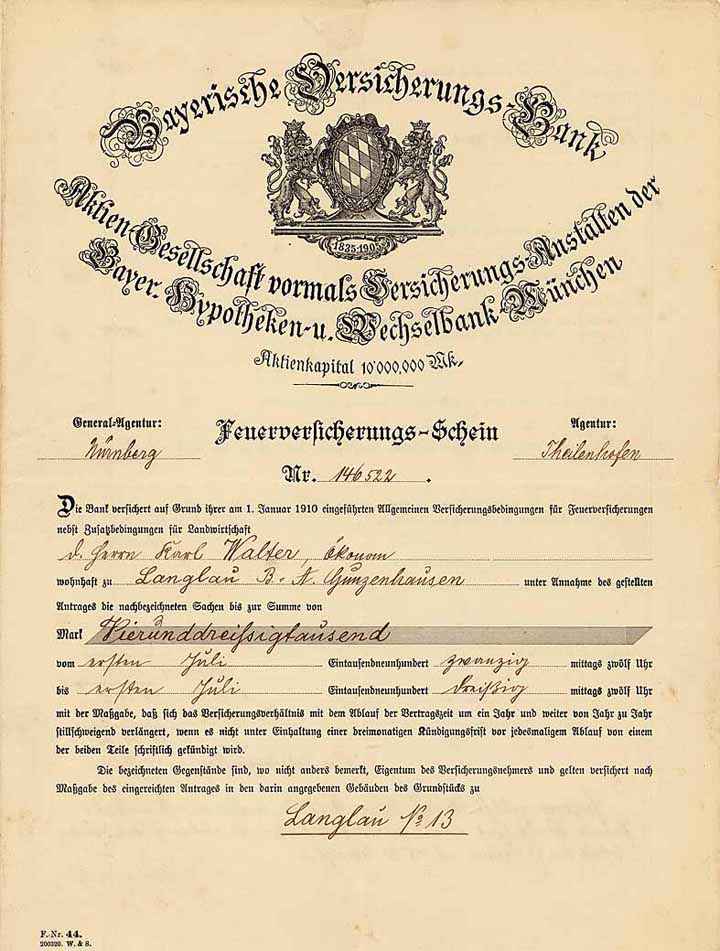 Bayerische Versicherungs-Bank
1835-1905
Aktien-Gesellschaft vormals Versicherungs-Anstalten der
Bayer. Hypotheken- u. Wechselbank-München
Aktienkapital 10'000,000 Mk.
General-Agentur:
Nürnberg
Feuerversicherungs-Schein
Agentur:
Theilenhofen
Nr. 146522.
Die Bank versichert auf Grund ihrer am 1. Januar 1910 eingeführten Allgemeinen Versicherungsbedingungen für Feuerversicherungen
nebst Zusatzbedingungen für Landwirtschaft
d. Herrn Karl Walter, Ökonom
wohnhaft zu Langlau B.-A. Gunzenhausen unter Annahme des gestellten
Antrages die nachbezeichneten Sachen bis zur Summe von
Mark Vierunddreissigtausend
vom ersten Juli Eintausendneunhundert zwanzig mittags zwölf Uhr
bis ersten Juli Eintausendneunhundert dreißig mittags zwölf Uhr
mit der Maßgabe, daß sich das Versicherungsverhältnis mit dem Ablauf der Vertragszeit um ein Jahr und weiter von Jahr zu Jahr
stillschweigend verlängert, wenn es nicht unter Einhaltung einer dreimonatigen Kündigungsfrist vor jedesmaligem Ablauf von einem
der beiden Teile schriftlich gekündigt wird.
Die bezeichneten Gegenstände sind, wo nicht anders bemerkt, Eigentum des Versicherungsnehmers und gelten versichert nach
Maßgabe des eingereichten Antrages in den darin angegebenen Gebäuden des Grundstücks zu
Langlau No 13
F.-Nr. 44.
200320. W. & S.